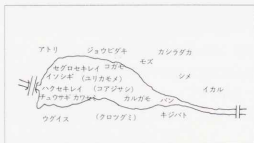 アトリ ジョウビタキ カシラダカ
モズ
セグロセキレイ コガモ
シメ
イソシギ (ユリカモメ)
イカル
ハクセキレイ (コアジサシ)
チュウサギ カワセミ カルガモ バン
ウグイス (クロツグミ) キジバト